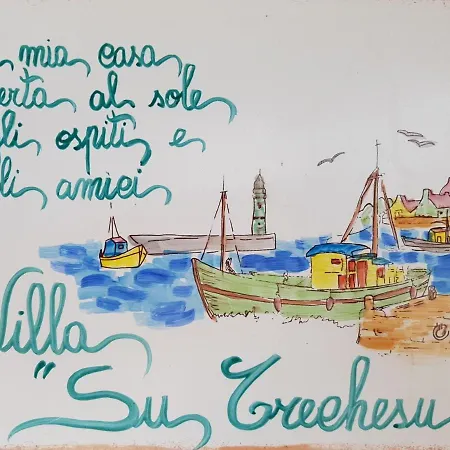 mia casa
erta al sole
li ospiti e
li amici
Villa
"Su Trechesu